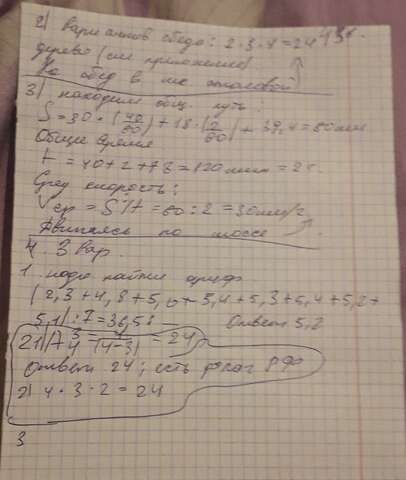 2) Вариантов обеда: 2·3·4=24
дерево (см приложение)
3) находим общ. путь:
S=30·(40/60)+18·(2/60)+39,4=60км
Общее время
t=40+2+78=120мин=2ч.
Сред скорость:
Vср=S:t=60:2=30км/ч
двигаясь по шоссе
4. 3 вар.
1. надо найти ариф
(2,3+4,8+5,0+5,4+5,3+5,4+5,2+
5,1):7=36,5:
Ответ 5,2
=24
ответ 24; есть флаг РФ
2) 4·3·2=24
3